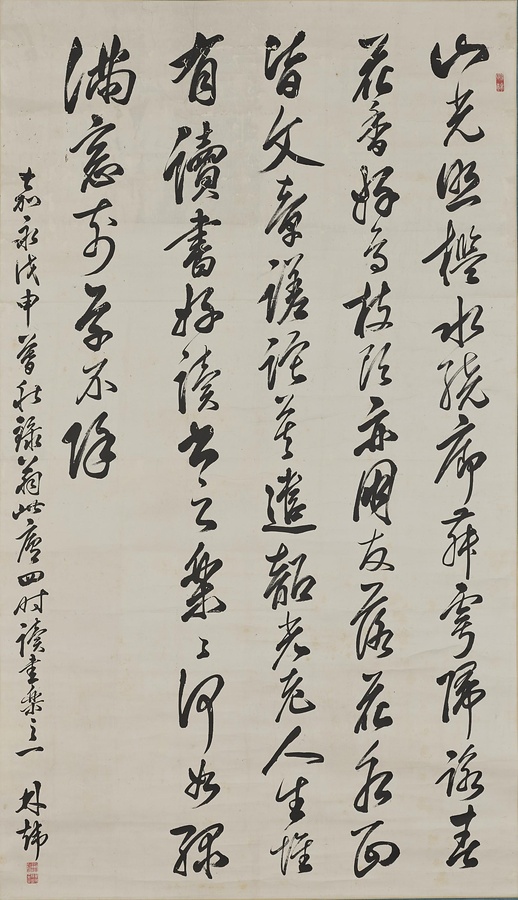 山光照檻水繞廊舞雩歸詠春
花香好鳥枝頭亦朋友落花水面
皆文章蹉跎莫遣韶光老人生惟
有讀書好讀書之樂〻何如綠
滿窓前草不除
嘉永戊申暮秋錄翁此廬四時讀書樂之一 林煒